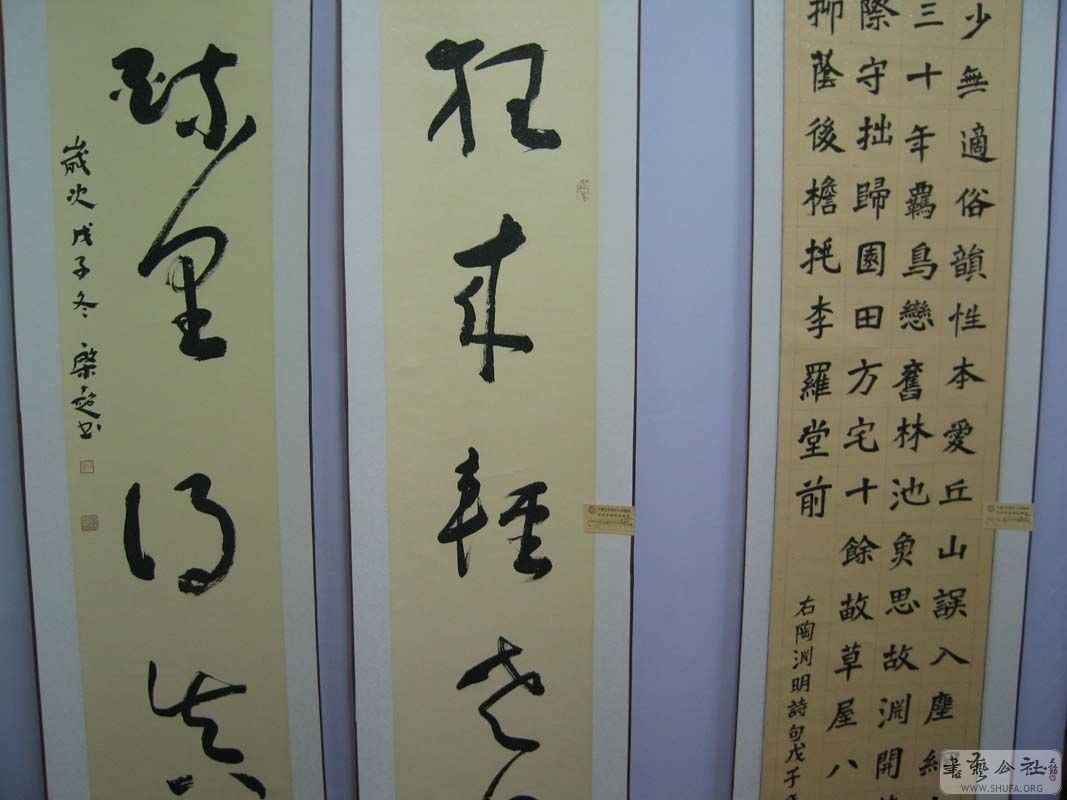 少無適俗韻性本愛丘山誤入塵
三十年羈鳥戀舊林池魚思故淵開
際守拙歸園田方宅十餘畝草屋八
柳蔭後檐桃李羅堂前
右陶淵明詩句戊子
狂來輕世
醉里得真
歲次戊子冬 梁超书
書藝公社
WWW.SHUFA.ORG